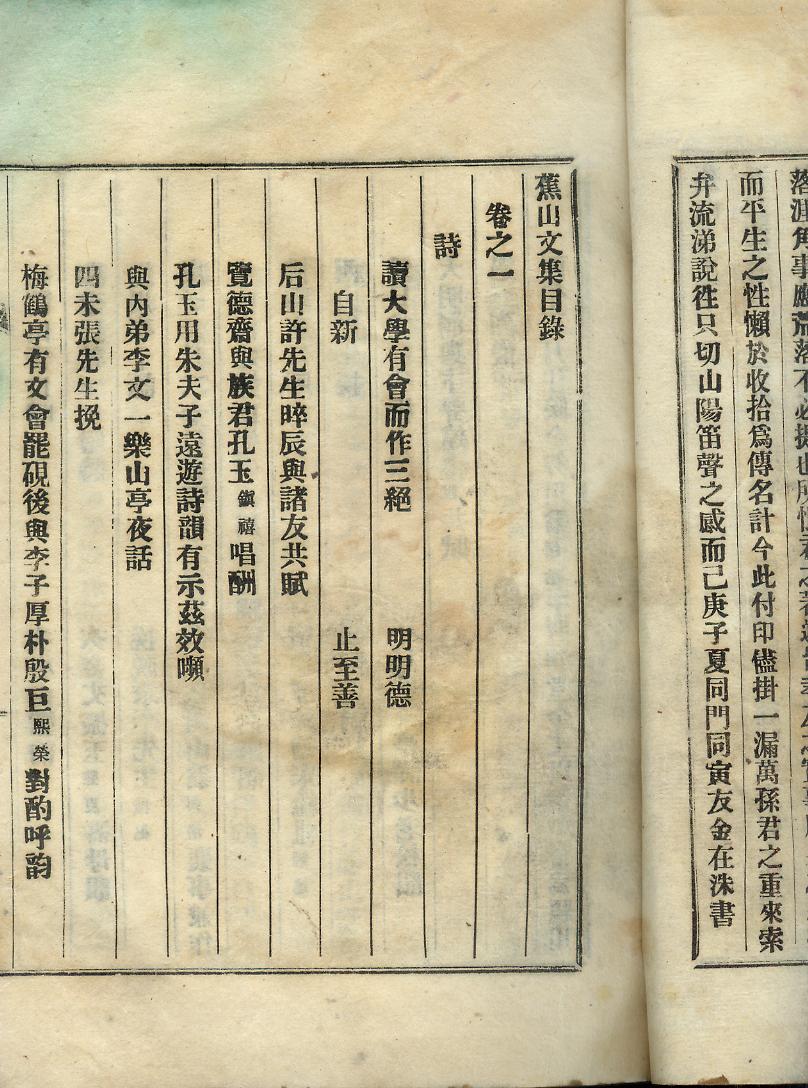 落 角事 荒落不必提也所
而平生之性懶於收拾爲傳名計今此付印儘掛一漏萬孫君之重來索
弁流涕說徃只切山陽笛聲之感而己庚子夏同門同寅友金在洙書
蕉山文集目錄
卷之一
詩
讀大學有會而作三絕 明明德
自新 止至善
后山許先生晬辰與諸友共賦
覽德齋與族君孔玉鎭禧唱酬
孔玉用朱夫子遠遊詩韻有示茲效嚬
與內弟李文一樂山亭夜話
四未張先生挽
梅鶴亭有文會罷硯後與李子厚朴殷巨熙榮對酌呼韵